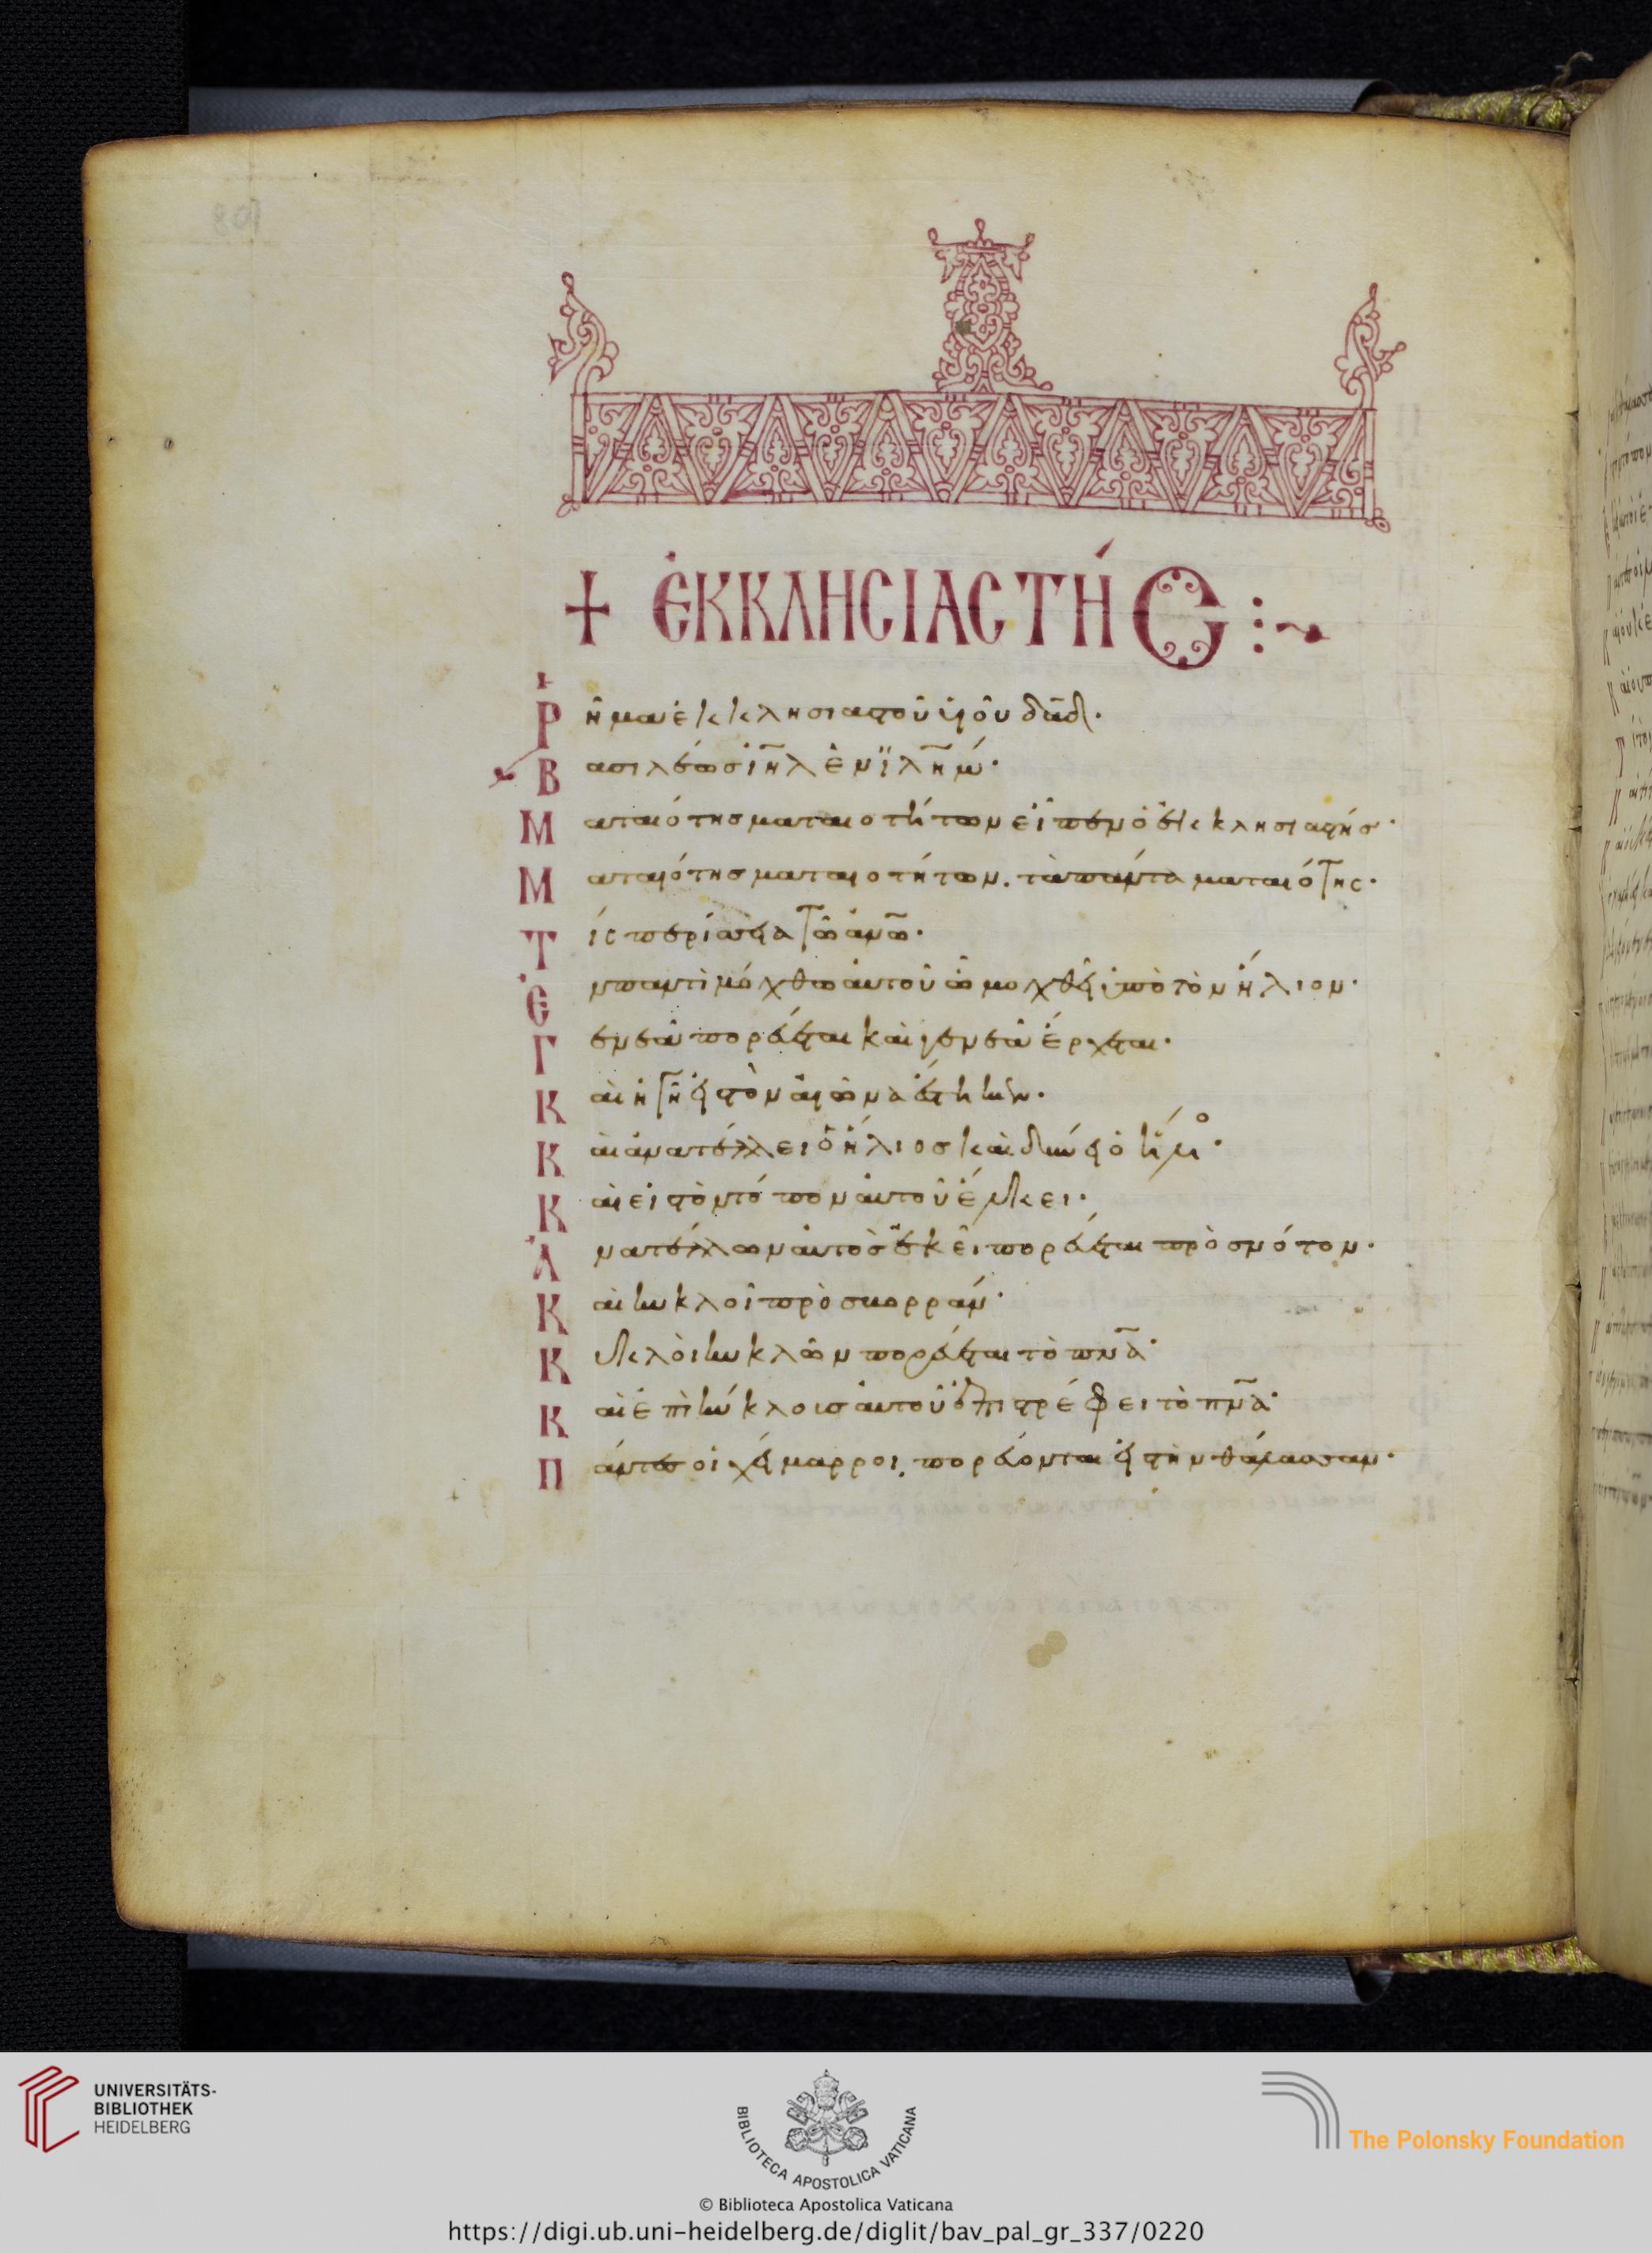 + ἘΚΚΛΗCΙΑCΤΉC :~
Ῥῆμα ἐκκλησιαστοῦ υἱοῦ δᾱδ.
Βασιλέωσ ἰη̄λ ἐν ϊλη̄μ.
Ματαιότησ ματαιοτήτων εἶπεν ὁ ἐκκλησιαστήσ.
Ματαιότησ ματαιοτήτων. τὰ πάντα ματαιότης.
Τίς περίσσεια τῶ ἀνω̄.
Ἐν παντὶ μόχθω αὐτοῦ ὧ μοχθεῖ ὑπὸ τὸν ἥλιον.
Γενεὰ πορεύεται καὶ γενεὰ ἔρχεται.
Καὶ ἡ γῆ εἰς τὸν αἰῶνα ἕστηκεν.
Καὶ ἀνατέλλει ὁ ἥλιοσ καὶ δύνει ὁ ἥλιο.
Καὶ εἰς τὸν τόπον αὐτοῦ ἕλκει.
Ἀνατέλλων αὐτὸσ ἐκεῖ πορεύεται πρὸσ νότον.
Καὶ κυκλοῖ πρὸσ βορρᾶν.
Κυκλοῖ κυκλῶν πορεύεται τὸ πνᾱ.
Καὶ ἐπὶ κύκλουσ αὐτοῦ ἐπιστρέφει τὸ πνᾱ.
Πάντεσ οἱ χείμαρροι, πορεύονται εἰς τὴν θάλασσαν.
UNIVERSITÄTS-
BIBLIOTHEK
HEIDELBERG
BIBLIOTECA APOSTOLICA VATICANA
© Biblioteca Apostolica Vaticana
The Polonsky Foundation
https://digi.ub.uni-heidelberg.de/diglit/bav_pal_gr_337/0220